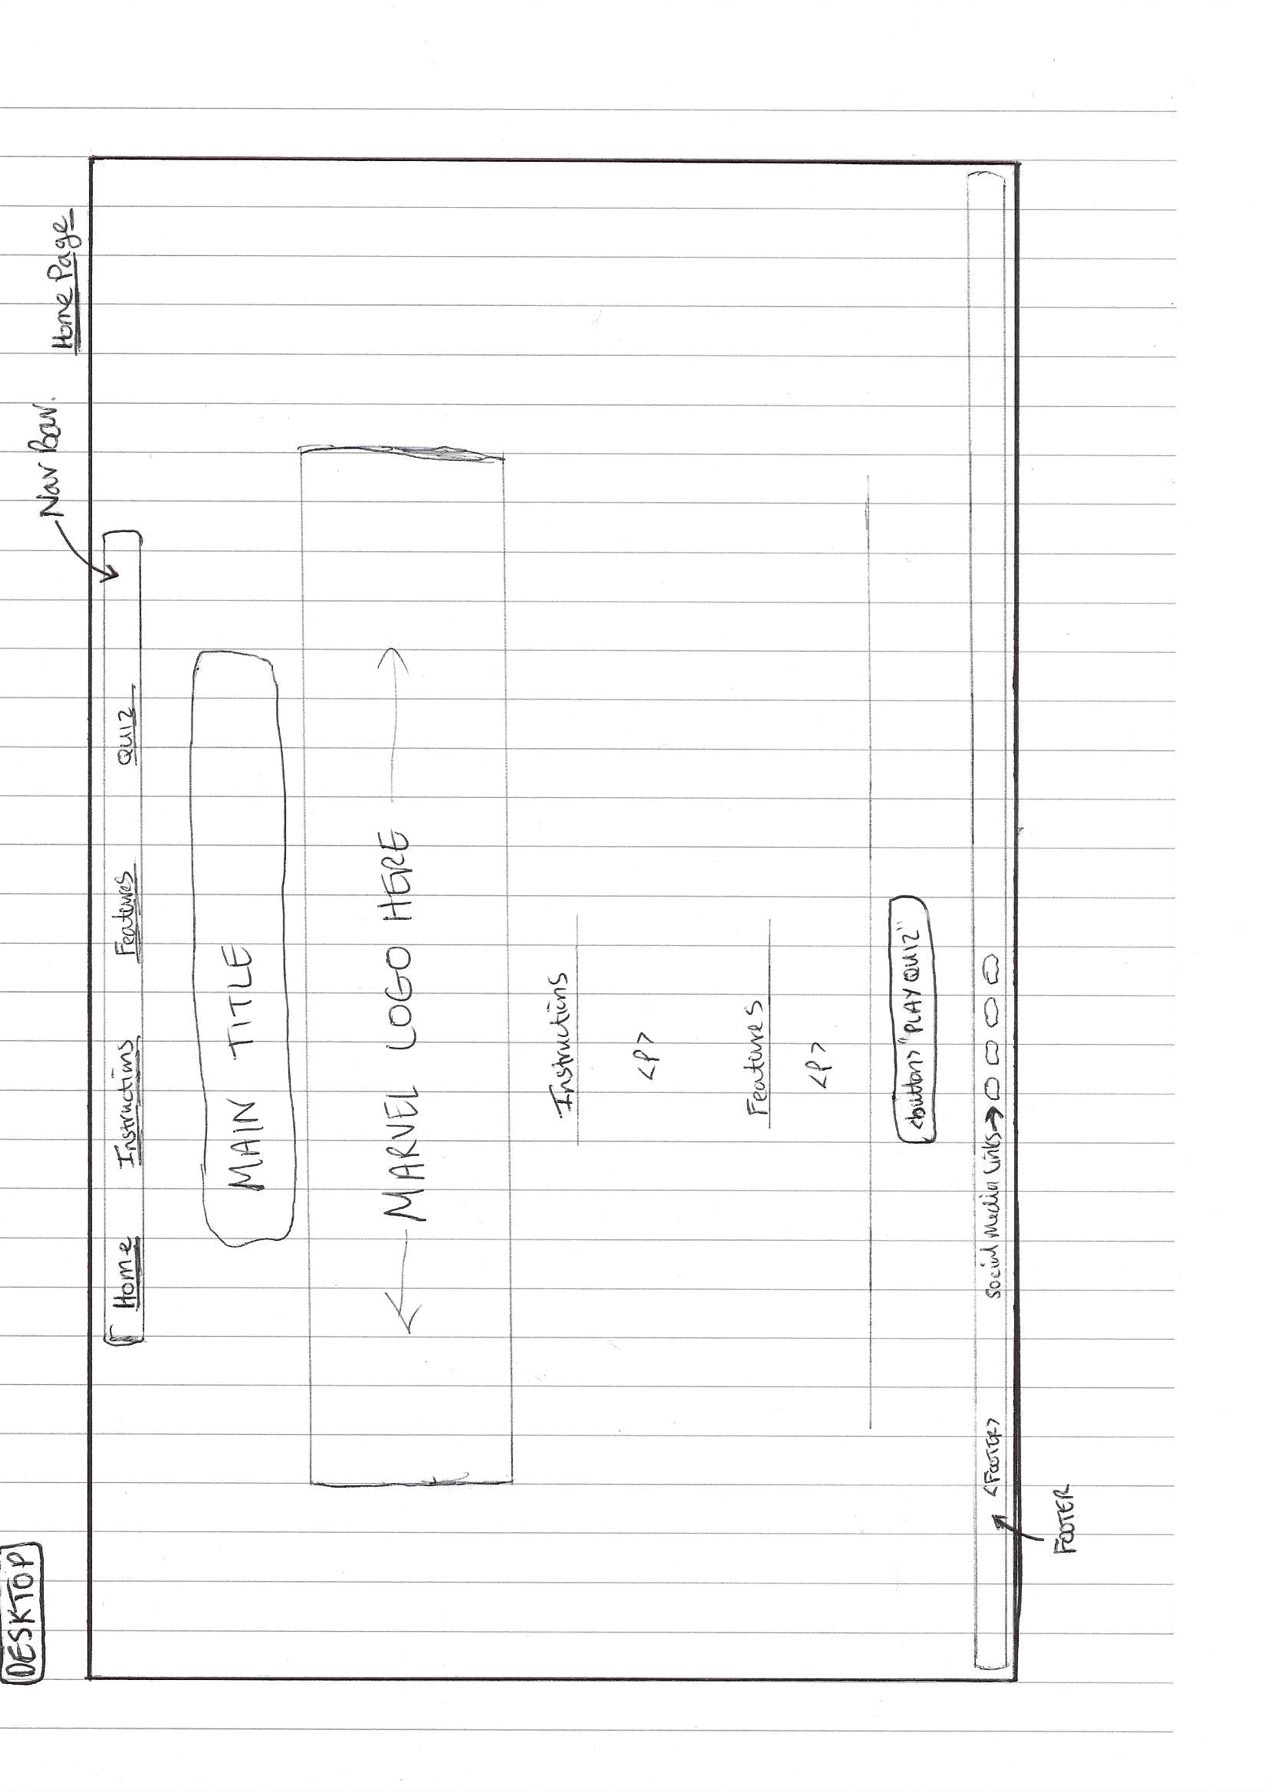 DESKTOP
Nav Bar.
Home Page
Home Instructions Features QUIZ
MAIN TITLE
MARVEL LOGO HERE
Instructions
<P>
Features
<P>
<button> "PLAY QUIZ"
<FOOTER> Social Media Links
FOOTER